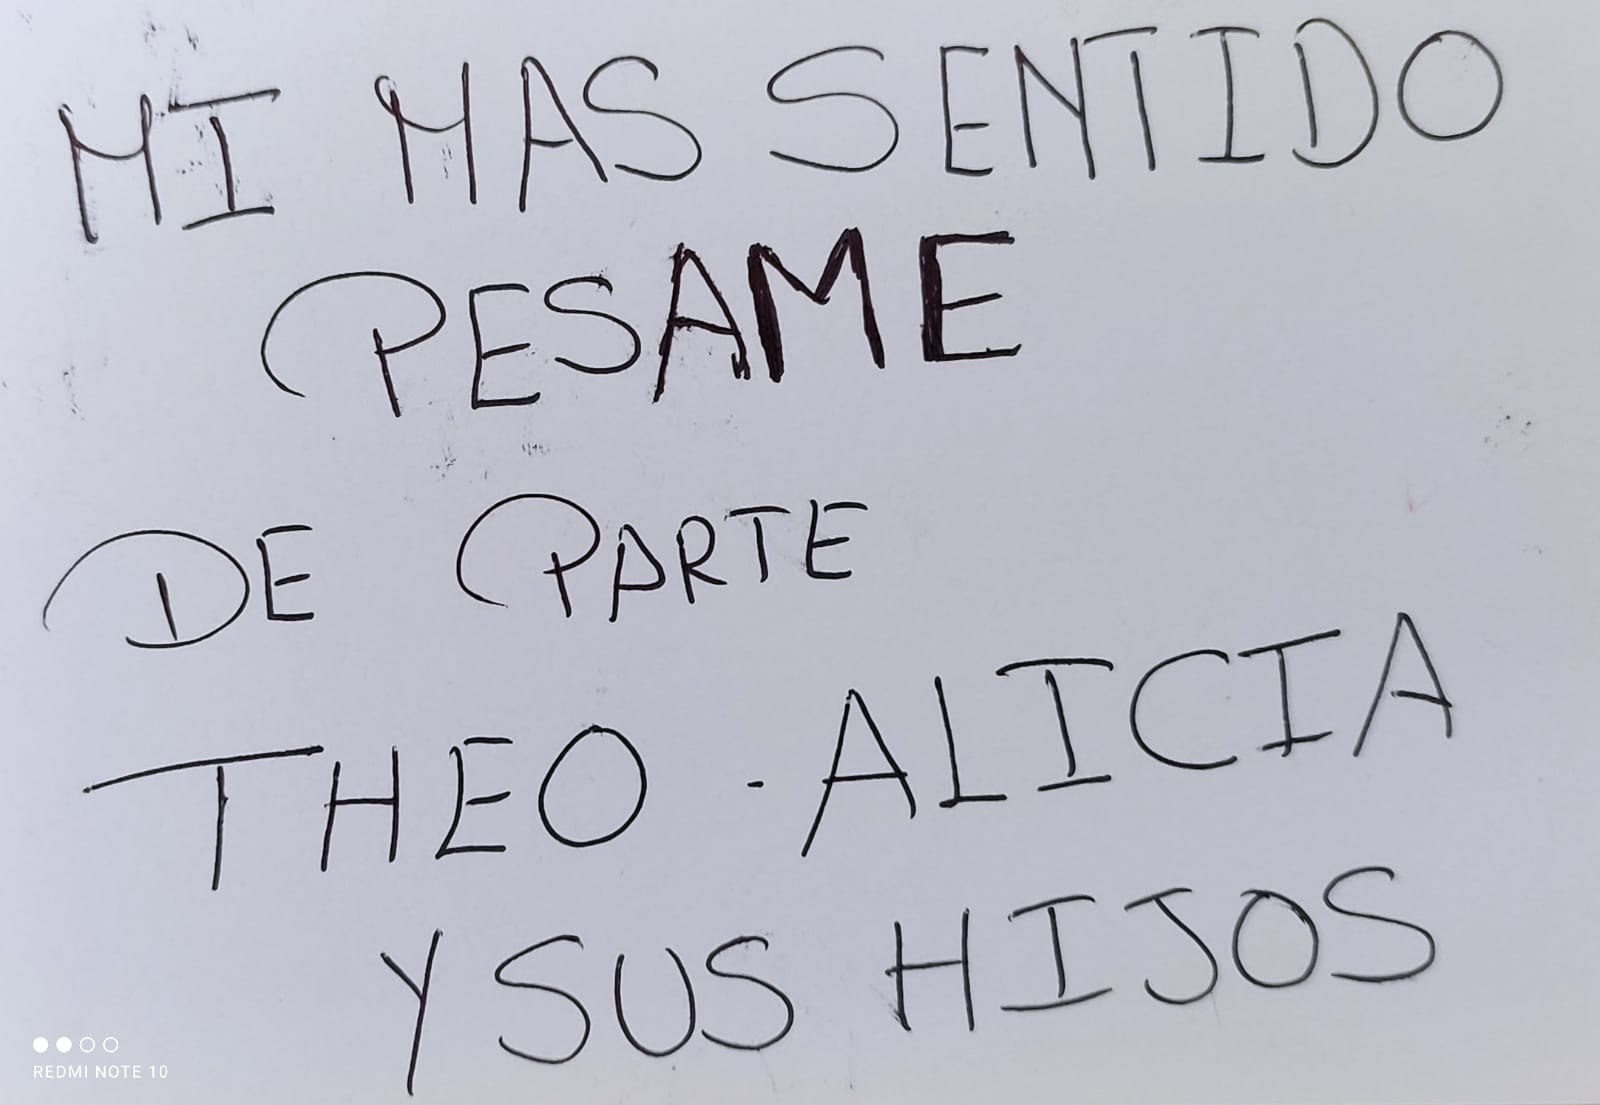 MI MAS SENTIDO
PESAME
DE PARTE
THEO - ALICIA
Y SUS HIJOS
REDMI NOTE 10